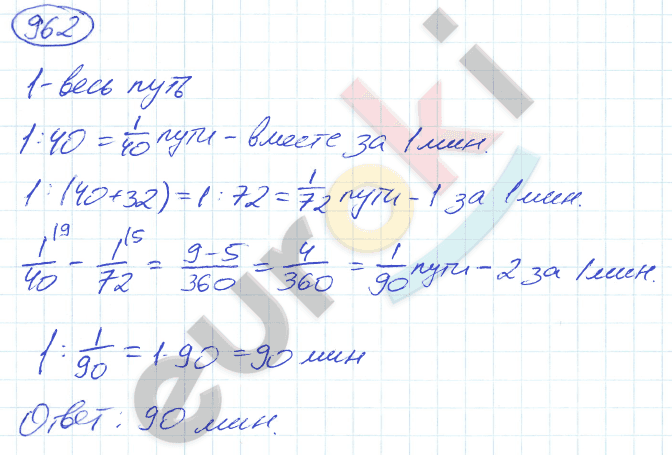 962
1 - весь путь
1 : 40 = 1/40 пути - вместе за 1 мин.
1 : (40 + 32) = 1 : 72 = 1/72 пути - 1 за 1 мин.
1/40 \9 - 1/72 \5 = (9-5)/360 = 4/360 = 1/90 пути - 2 за 1 мин.
1 : 1/90 = 1 · 90 = 90 мин
Ответ: 90 мин.
euroki